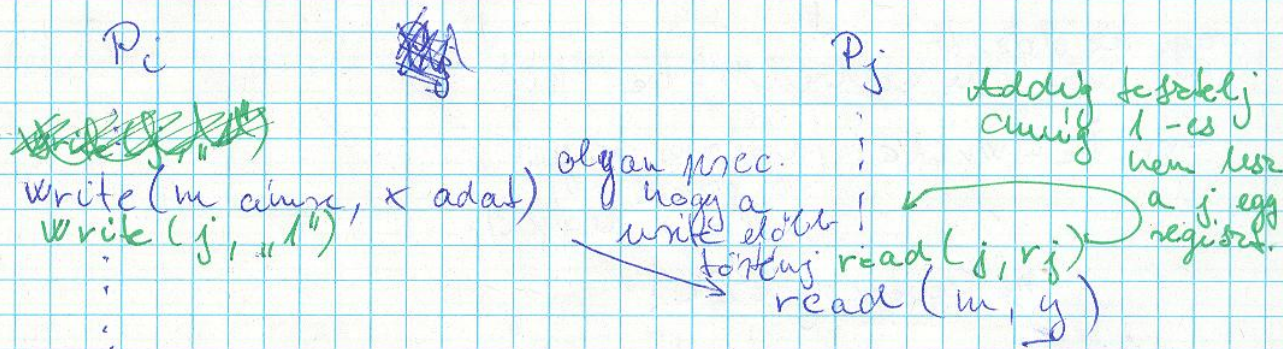 Pi
Pj
write(m címre, x adat)
write(j, „1")
olyan prec.
hogy a
write előbb
történj
read(j, rj)
read(m, y)
Addig tesztelj
amíg 1-es
nem lesz
a j egy
regiszt.